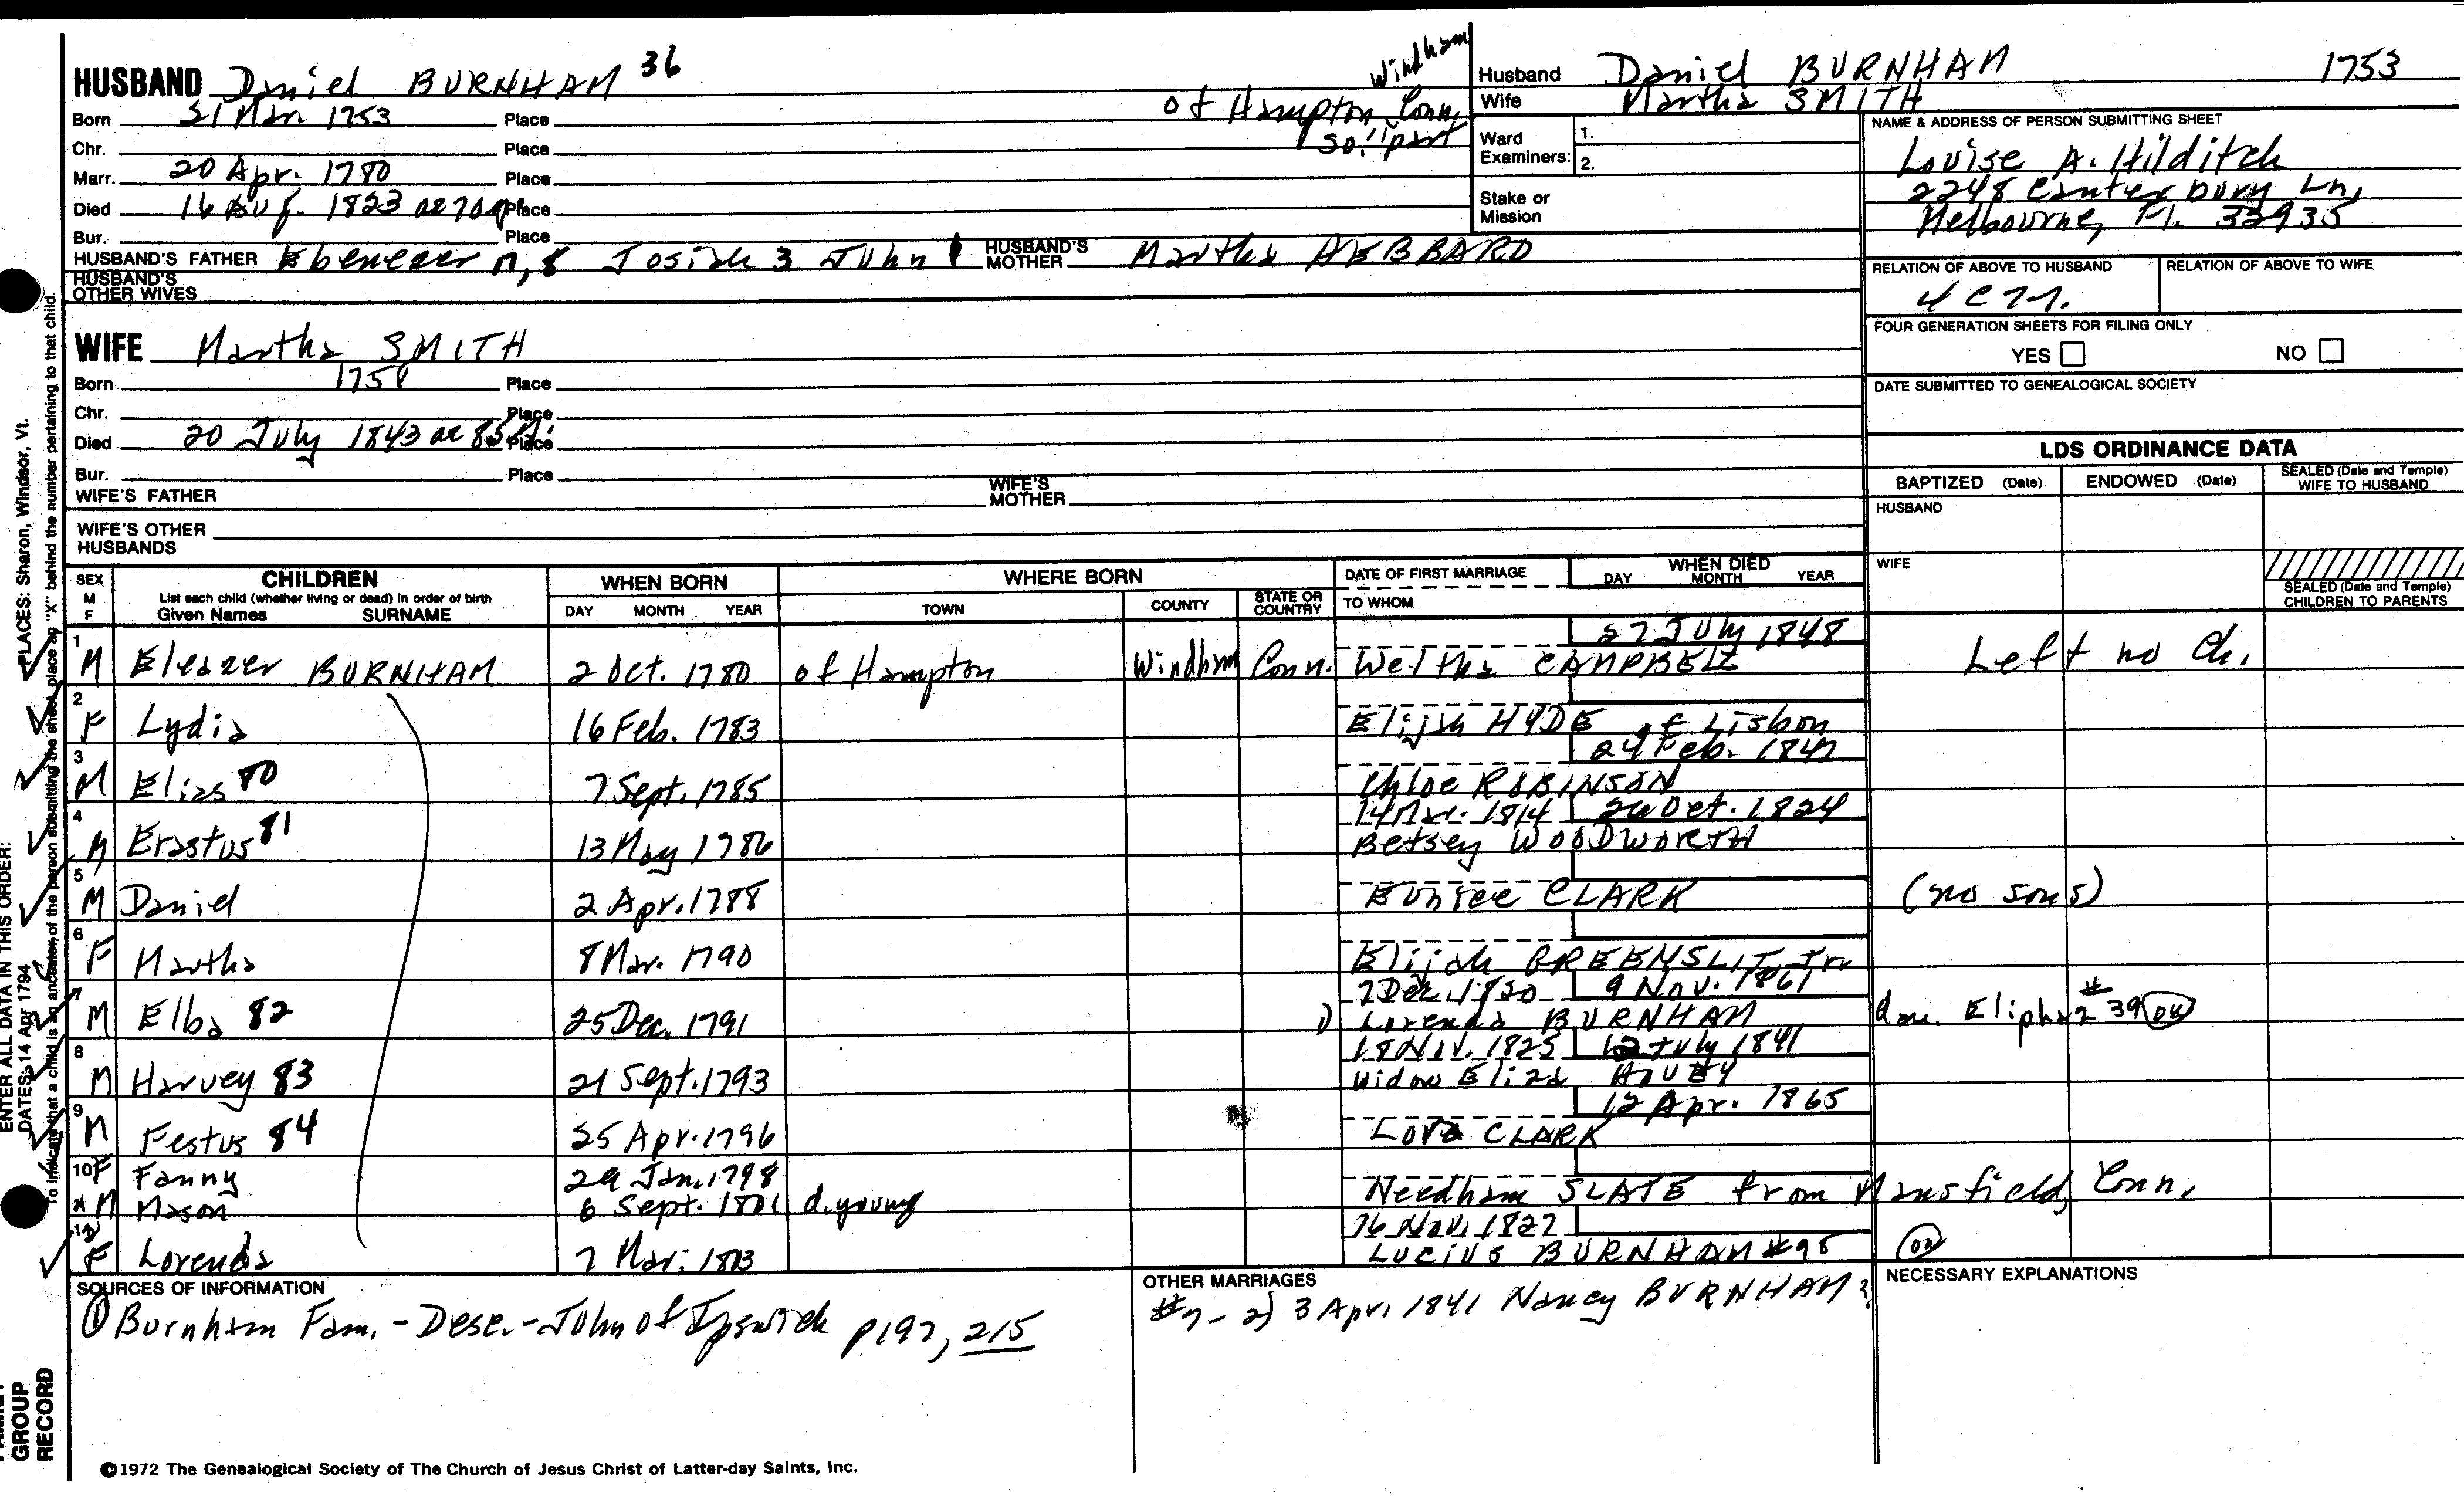 HUSBAND Daniel BURNHAM 36
Windham
of Hampton, Conn.
so. part
Born 21 Mar. 1753 Place
Chr. Place
Marr. 20 Apr. 1780 Place
Died 16 Aug. 1823 ae 70 Place
Bur. Place
HUSBAND'S FATHER Ebenezer Josiah 3 John 1 HUSBAND'S MOTHER Martha HEBBARD
HUSBAND'S OTHER WIVES
WIFE Martha SMITH
Born 1758 Place
Chr. Place
Died 20 July 1843 ae 85 Place
Bur. Place
WIFE'S FATHER WIFE'S MOTHER
WIFE'S OTHER HUSBANDS
Husband Daniel BURNHAM 1753
Wife Martha SMITH
Ward Examiners: 1. 2.
Stake or Mission
NAME & ADDRESS OF PERSON SUBMITTING SHEET
Louise A. Hilditch
2248 Canterbury Ln,
Melbourne, Fl. 32935
RELATION OF ABOVE TO HUSBAND RELATION OF ABOVE TO WIFE
FOUR GENERATION SHEETS FOR FILING ONLY
YES NO
DATE SUBMITTED TO GENEALOGICAL SOCIETY
LDS ORDINANCE DATA
BAPTIZED (Date) ENDOWED (Date) SEALED (Date and Temple) WIFE TO HUSBAND
HUSBAND
WIFE
SEALED (Date and Temple) CHILDREN TO PARENTS
SEX M F CHILDREN List each child (whether living or dead) in order of birth Given Names SURNAME WHEN BORN DAY MONTH YEAR WHERE BORN TOWN COUNTY STATE OR COUNTRY DATE OF FIRST MARRIAGE TO WHOM WHEN DIED DAY MONTH YEAR
27 July 1848
1 M Eleazer BURNHAM 2 Oct. 1780 of Hampton Windham Conn. Weltha CAMPBELL Left no Ch.
2 F Lydia 16 Feb. 1783 Elijah HYDE of Lisbon
24 Feb. 1847
3 M Elias 80 7 Sept. 1785 Chloe ROBINSON
14 Mar. 1814 Oct. 1824
4 M Erastus 81 13 May 1786 Betsey WOODWORTH
5 M Daniel 2 Apr. 1788 CLARK (no sons)
6 F Martha 8 Mar. 1790 Elijah GREENSLIT Jr.
7 Dec. 1820 9 Nov. 1861
7 M Elba 82 25 Dec. 1791 1) Lorenda BURNHAM dau. Eliphaz #39 OK
18 Nov. 1825 12 July 1841
8 M Harvey 83 21 Sept. 1793 Widow Eliza HOVEY
12 Apr. 1865
9 M Festus 84 25 Apr. 1796 Lora CLARK
10 F Fanny 29 Jan. 1798 Needham SLATE from Mansfield, Conn.
11 M Mason 6 Sept. 1801 d. young
16 Nov. 1822
12 F Lorenda 7 Mar. 1803 Lucius BURNHAM #98 OK
SOURCES OF INFORMATION
① Burnham Fam. - Desc. - John of Ipswich p197, 215
OTHER MARRIAGES
#7 - 2) 3 Apr. 1841 Nancy BURNHAM?
NECESSARY EXPLANATIONS
©1972 The Genealogical Society of The Church of Jesus Christ of Latter-day Saints, Inc.
ENTER ALL DATA IN THIS ORDER:
DATES: 14 Apr 1794
PLACES: Sharon, Windsor, Vt.
To indicate that a child is an ancestor of the person submitting the sheet, place an "X" behind the number pertaining to that child.
GROUP
RECORD